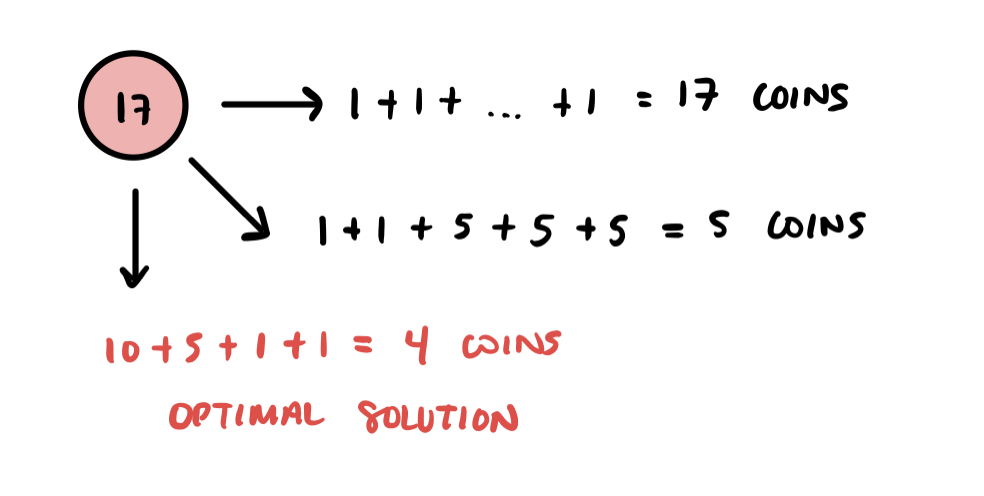 17
1 + 1 + ... + 1 = 17 COINS
1 + 1 + 5 + 5 + 5 = 5 COINS
10 + 5 + 1 + 1 = 4 COINS
OPTIMAL SOLUTION